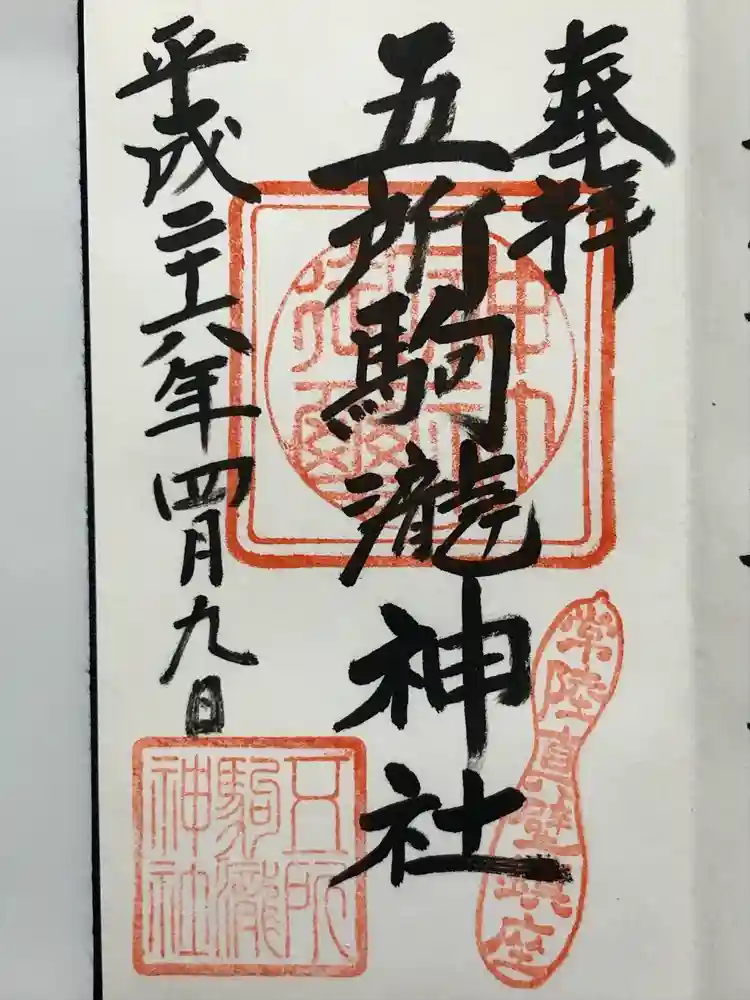 奉拝
五所駒瀧神社
平成二十六年四月九日
常陸真壁鎮座
五所
駒瀧
神社